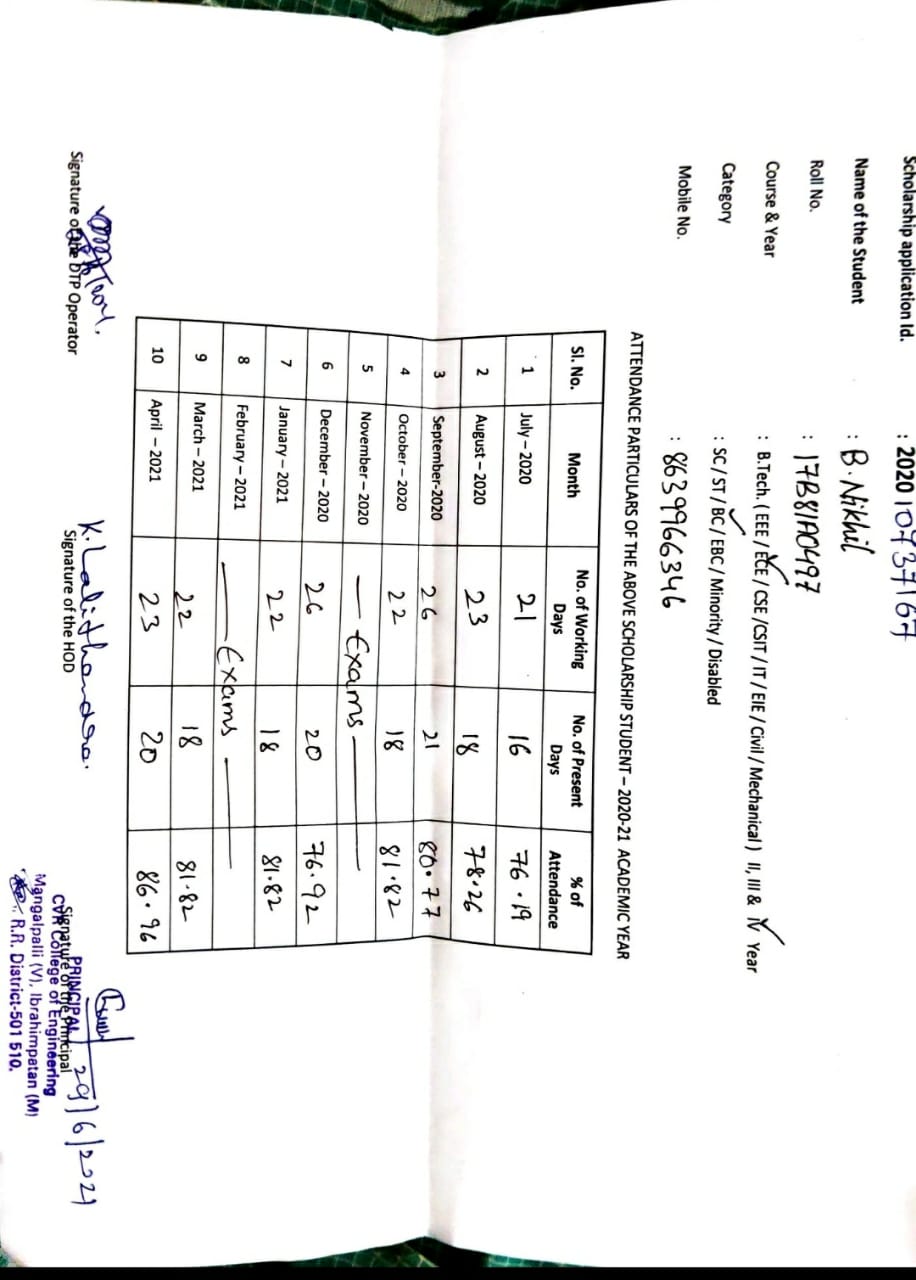 Scholarship application Id. : 2020 10737167
Name of the Student : B. Nikhil
Roll No. : 17B81A0497
Course & Year : B.Tech. ( EEE / ECE / CSE /CSIT / IT / EIE / Civil / Mechanical ) II, III & IV Year
Category : SC / ST / BC / EBC / Minority / Disabled
Mobile No. : 8639966346
ATTENDANCE PARTICULARS OF THE ABOVE SCHOLARSHIP STUDENT – 2020-21 ACADEMIC YEAR
Sl. No. Month No. of Working Days No. of Present Days % of Attendance
1 July – 2020 21 16 76.19
2 August – 2020 23 18 78.26
3 September-2020 26 21 80.77
4 October – 2020 22 18 81.82
5 November – 2020 — Exams —
6 December – 2020 26 20 76.92
7 January – 2021 22 18 81.82
8 February – 2021 — Exams —
9 March – 2021 22 18 81.82
10 April – 2021 23 20 86.96
K. Lalithendra.
29/6/2021
Signature of the DTP Operator Signature of the HOD Signature of the Principal
PRINCIPAL
CVR College of Engineering
Mangalpalli (V), Ibrahimpatan (M)
R.R. District-501 510.